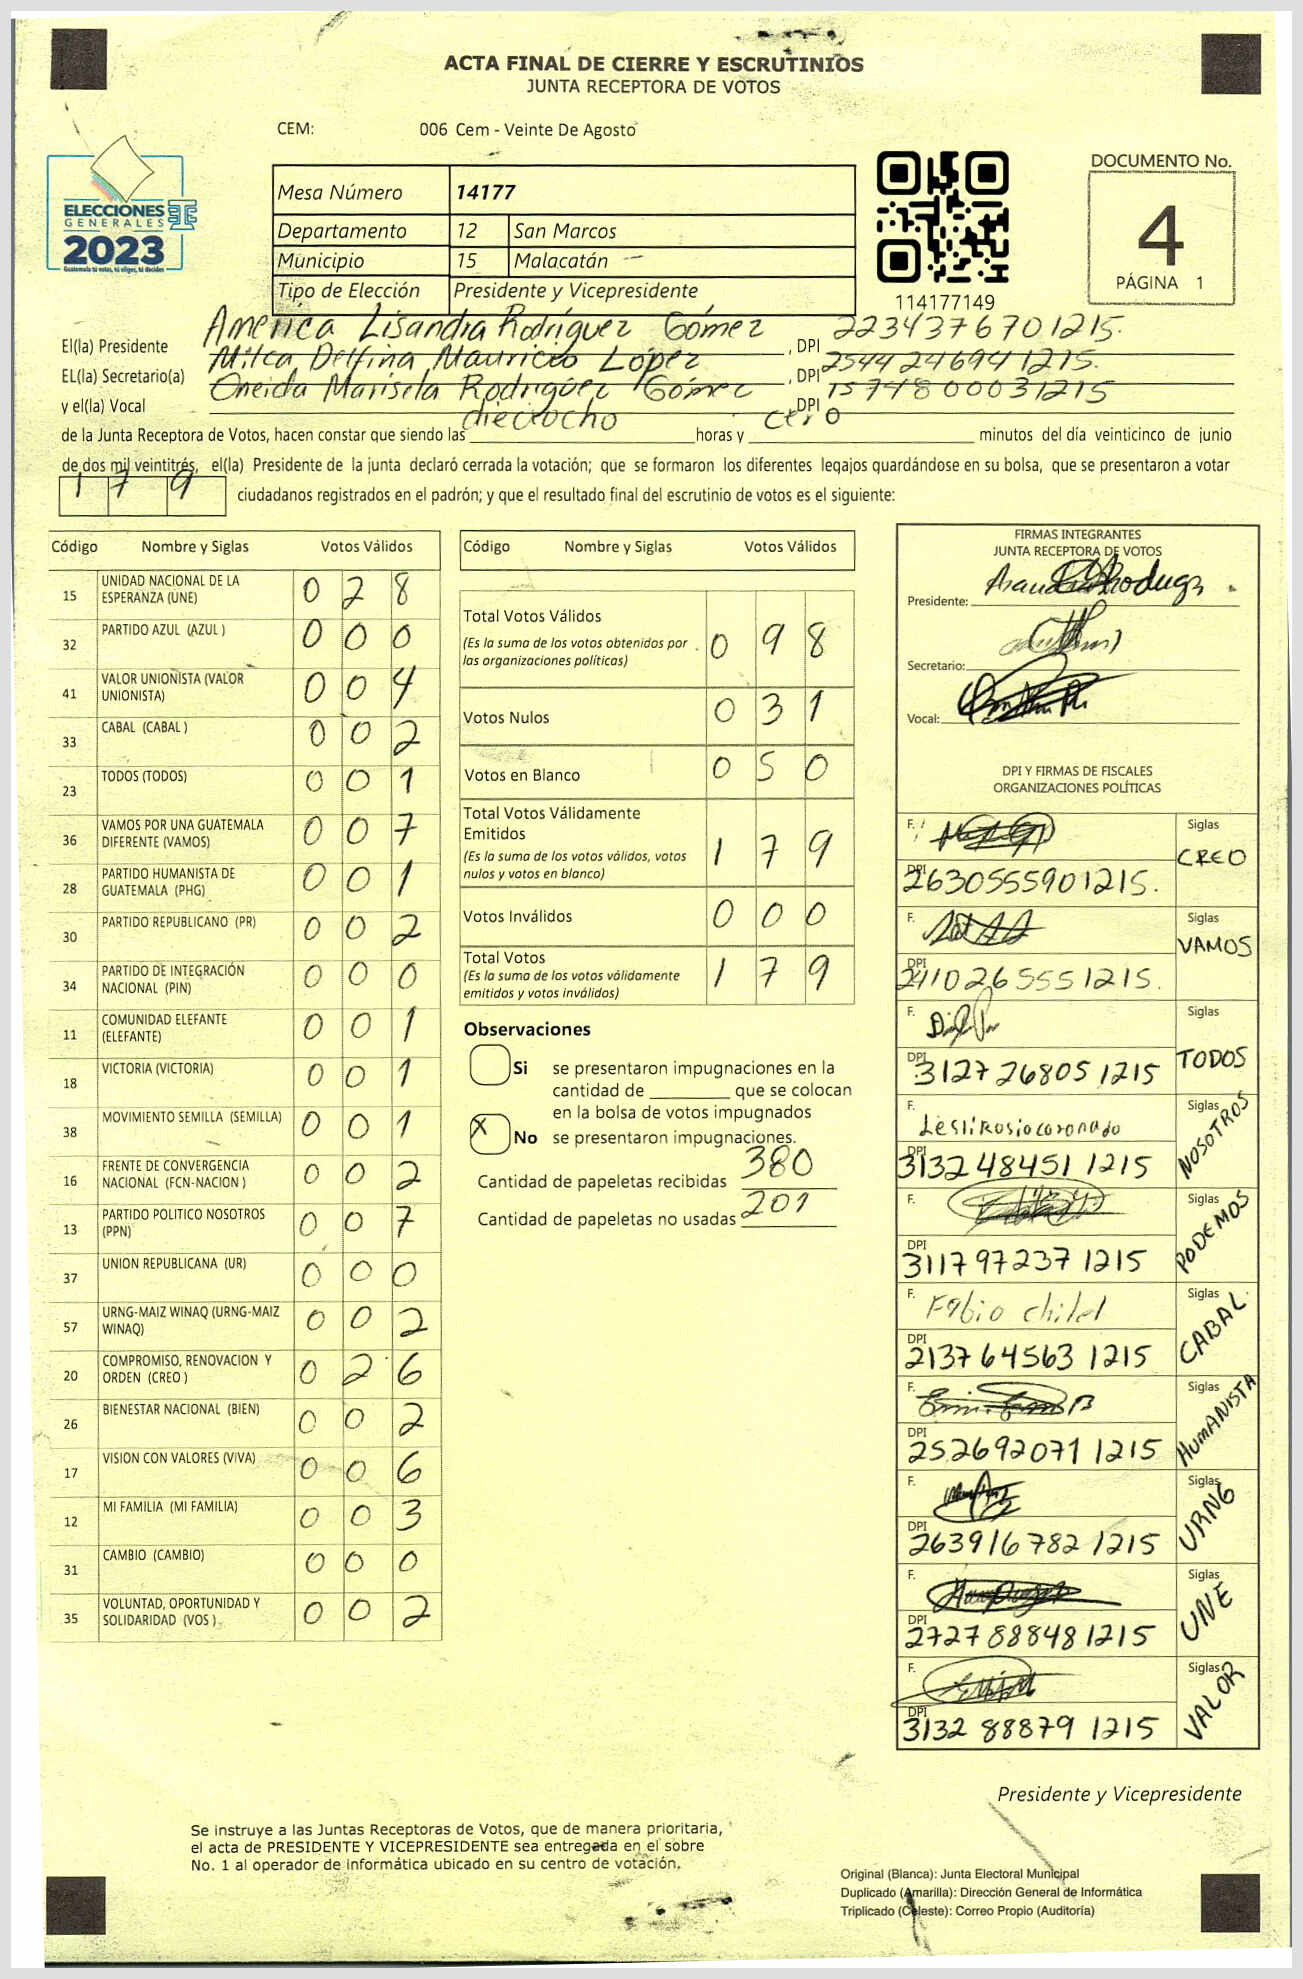 ACTA FINAL DE CIERRE Y ESCRUTINIOS
JUNTA RECEPTORA DE VOTOS
CEM: 006 Cem - Veinte De Agosto
ELECCIONES
GENERALES
2023
Guatemala tú votas, tú eliges, tú decides
Mesa Número 14177
Departamento 12 San Marcos
Municipio 15 Malacatán
Tipo de Elección Presidente y Vicepresidente
114177149
DOCUMENTO No.
4
PÁGINA 1
El(la) Presidente América Lisandra Rodríguez Gómez , DPI 2234376701215.
EL(la) Secretario(a) Milca Delfina Mauricio López , DPI 2544246941215.
y el(la) Vocal Oneida Marisela Rodríguez Gómez DPI 1574800031215
de la Junta Receptora de Votos, hacen constar que siendo las dieciocho horas y cero minutos del día veinticinco de junio
de dos mil veintitrés, el(la) Presidente de la junta declaró cerrada la votación; que se formaron los diferentes legajos guardándose en su bolsa, que se presentaron a votar
179 ciudadanos registrados en el padrón; y que el resultado final del escrutinio de votos es el siguiente:
Código Nombre y Siglas Votos Válidos
15 UNIDAD NACIONAL DE LA ESPERANZA (UNE) 0 2 8
32 PARTIDO AZUL (AZUL ) 0 0 0
41 VALOR UNIONISTA (VALOR UNIONISTA) 0 0 4
33 CABAL (CABAL ) 0 0 2
23 TODOS (TODOS) 0 0 1
36 VAMOS POR UNA GUATEMALA DIFERENTE (VAMOS) 0 0 7
28 PARTIDO HUMANISTA DE GUATEMALA (PHG) 0 0 1
30 PARTIDO REPUBLICANO (PR) 0 0 2
34 PARTIDO DE INTEGRACIÓN NACIONAL (PIN) 0 0 0
11 COMUNIDAD ELEFANTE (ELEFANTE) 0 0 1
18 VICTORIA (VICTORIA) 0 0 1
38 MOVIMIENTO SEMILLA (SEMILLA) 0 0 1
16 FRENTE DE CONVERGENCIA NACIONAL (FCN-NACION ) 0 0 2
13 PARTIDO POLITICO NOSOTROS (PPN) 0 0 7
37 UNION REPUBLICANA (UR) 0 0 0
57 URNG-MAIZ WINAQ (URNG-MAIZ WINAQ) 0 0 2
20 COMPROMISO, RENOVACION Y ORDEN (CREO ) 0 2 6
26 BIENESTAR NACIONAL (BIEN) 0 0 2
17 VISION CON VALORES (VIVA) 0 0 6
12 MI FAMILIA (MI FAMILIA) 0 0 3
31 CAMBIO (CAMBIO) 0 0 0
35 VOLUNTAD, OPORTUNIDAD Y SOLIDARIDAD (VOS ) 0 0 2
Código Nombre y Siglas Votos Válidos
Total Votos Válidos
(Es la suma de los votos obtenidos por las organizaciones políticas) 0 9 8
Votos Nulos 0 3 1
Votos en Blanco 0 5 0
Total Votos Válidamente Emitidos
(Es la suma de los votos válidos, votos nulos y votos en blanco) 1 7 9
Votos Inválidos 0 0 0
Total Votos
(Es la suma de los votos válidamente emitidos y votos inválidos) 1 7 9
Observaciones
Si se presentaron impugnaciones en la
cantidad de ________ que se colocan
en la bolsa de votos impugnados
X No se presentaron impugnaciones.
Cantidad de papeletas recibidas 380
Cantidad de papeletas no usadas 201
FIRMAS INTEGRANTES
JUNTA RECEPTORA DE VOTOS
Presidente:
Secretario:
Vocal:
DPI Y FIRMAS DE FISCALES
ORGANIZACIONES POLÍTICAS
F. Siglas CREO
DPI 2630555901215.
F. Siglas VAMOS
DPI 2410265551215.
F. Siglas TODOS
DPI 3127268051215
F. Siglas NOSOTROS
DPI 3132484511215
F. Siglas PODEMOS
DPI 3117972371215
F. Fabio Chilel Siglas CABAL
DPI 2137645631215
F. Siglas HUMANISTA
DPI 2526920711215
F. Siglas URNG
DPI 2639167821215
F. Siglas UNE
DPI 2727888481215
F. Siglas VALOR
DPI 3132888791215
Presidente y Vicepresidente
Se instruye a las Juntas Receptoras de Votos, que de manera prioritaria,
el acta de PRESIDENTE Y VICEPRESIDENTE sea entregada en el sobre
No. 1 al operador de informática ubicado en su centro de votación.
Original (Blanca): Junta Electoral Municipal
Duplicado (Amarilla): Dirección General de Informática
Triplicado (Celeste): Correo Propio (Auditoría)